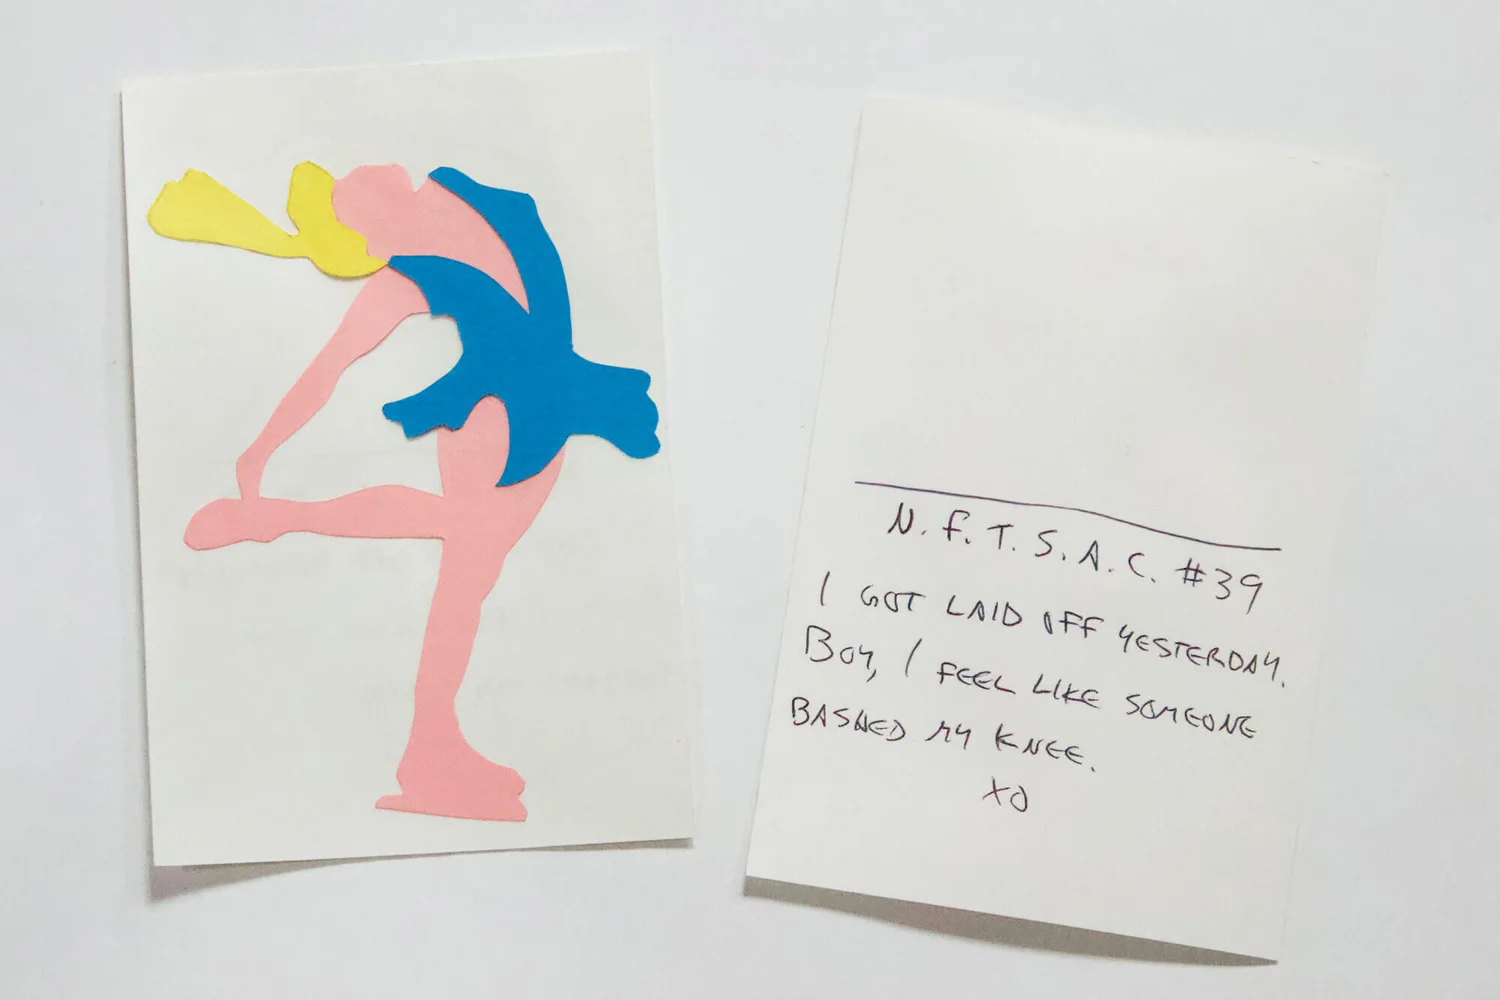 N. F. T. S. A. C. #39
I GOT LAID OFF YESTERDAY.
BOY, I FEEL LIKE SOMEONE
BASHED MY KNEE.
XO